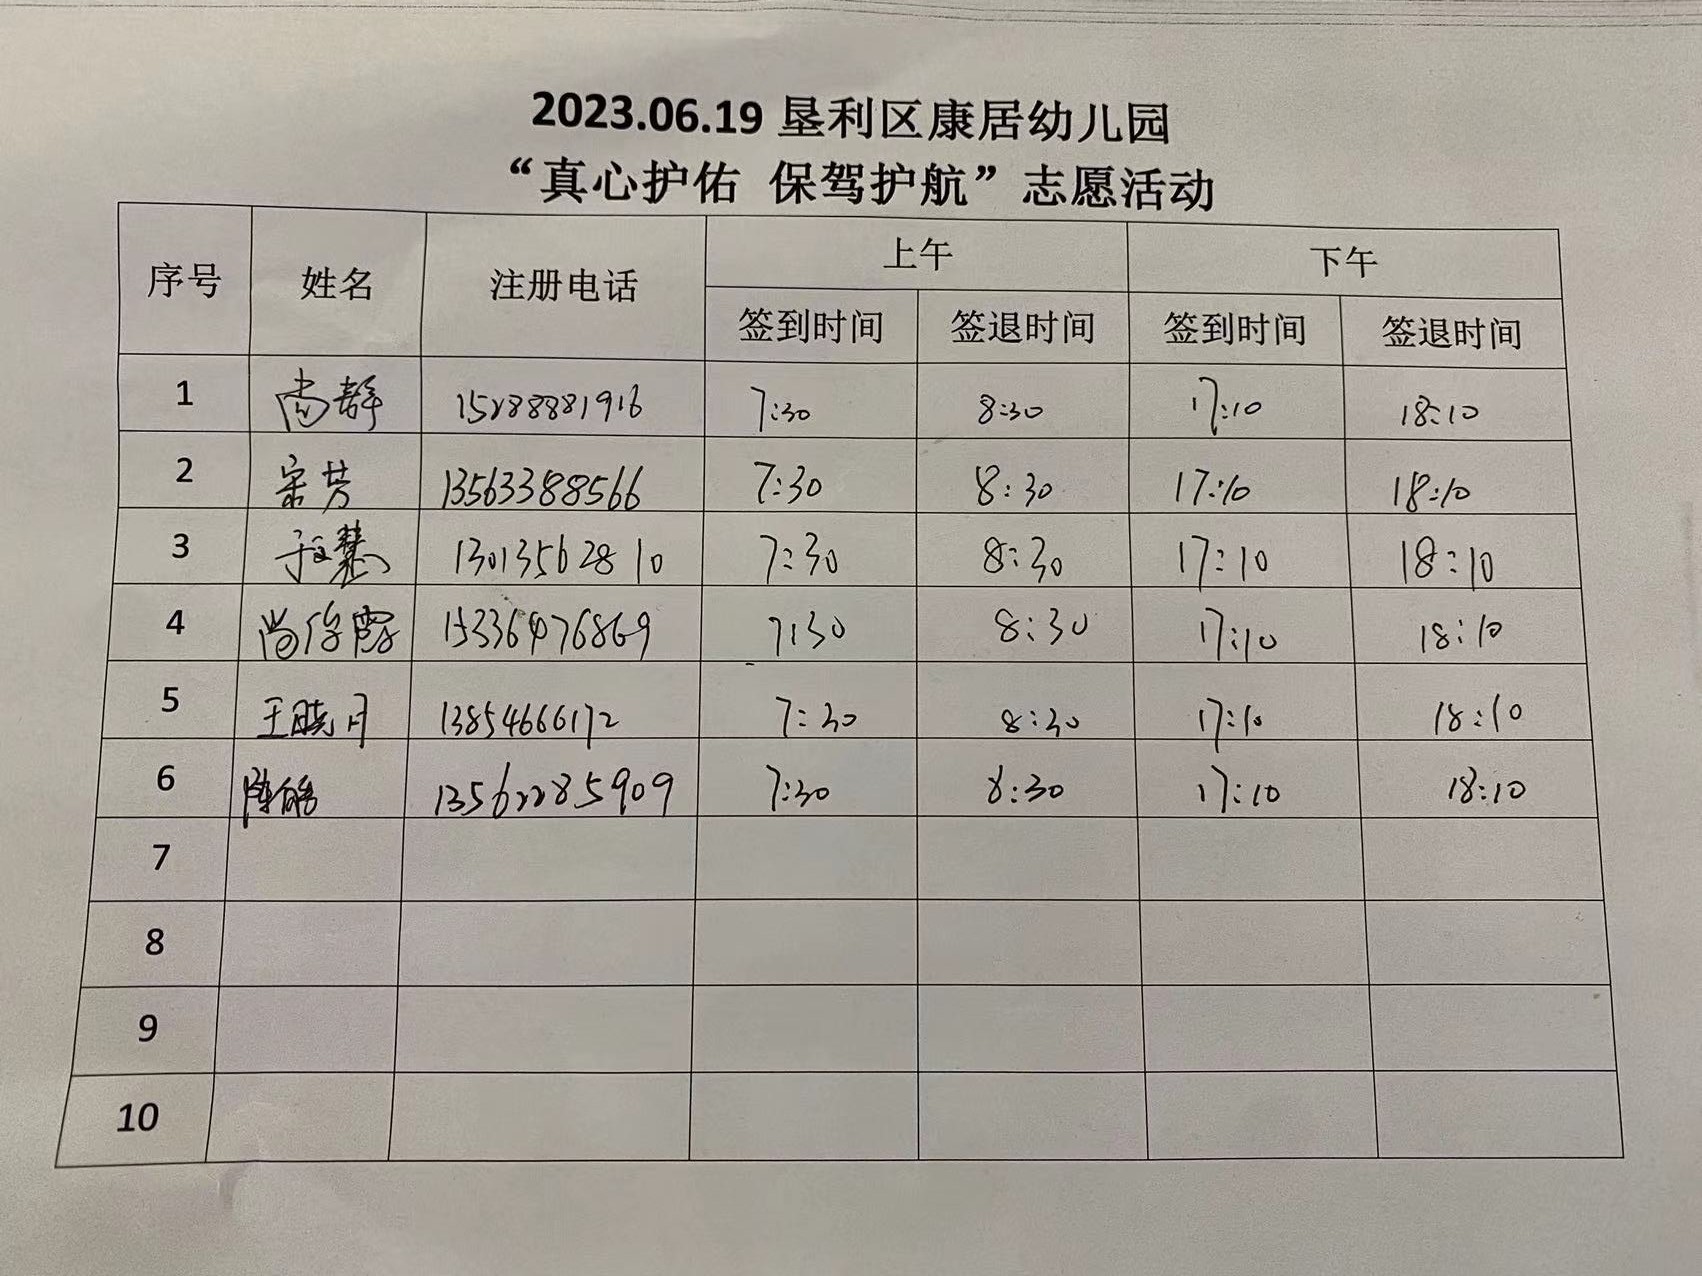 2023.06.19 垦利区康居幼儿园
“真心护佑 保驾护航”志愿活动
序号 姓名 注册电话 上午 下午
签到时间 签退时间 签到时间 签退时间
1 尚静 15288881916 7:30 8:30 17:10 18:10
2 宋芳 13563388566 7:30 8:30 17:10 18:10
3 13013562810 7:30 8:30 17:10 18:10
4 15336476869 7:30 8:30 17:10 18:10
5 王晓月 13854666172 7:30 8:30 17:10 18:10
6 13562285909 7:30 8:30 17:10 18:10
7
8
9
10